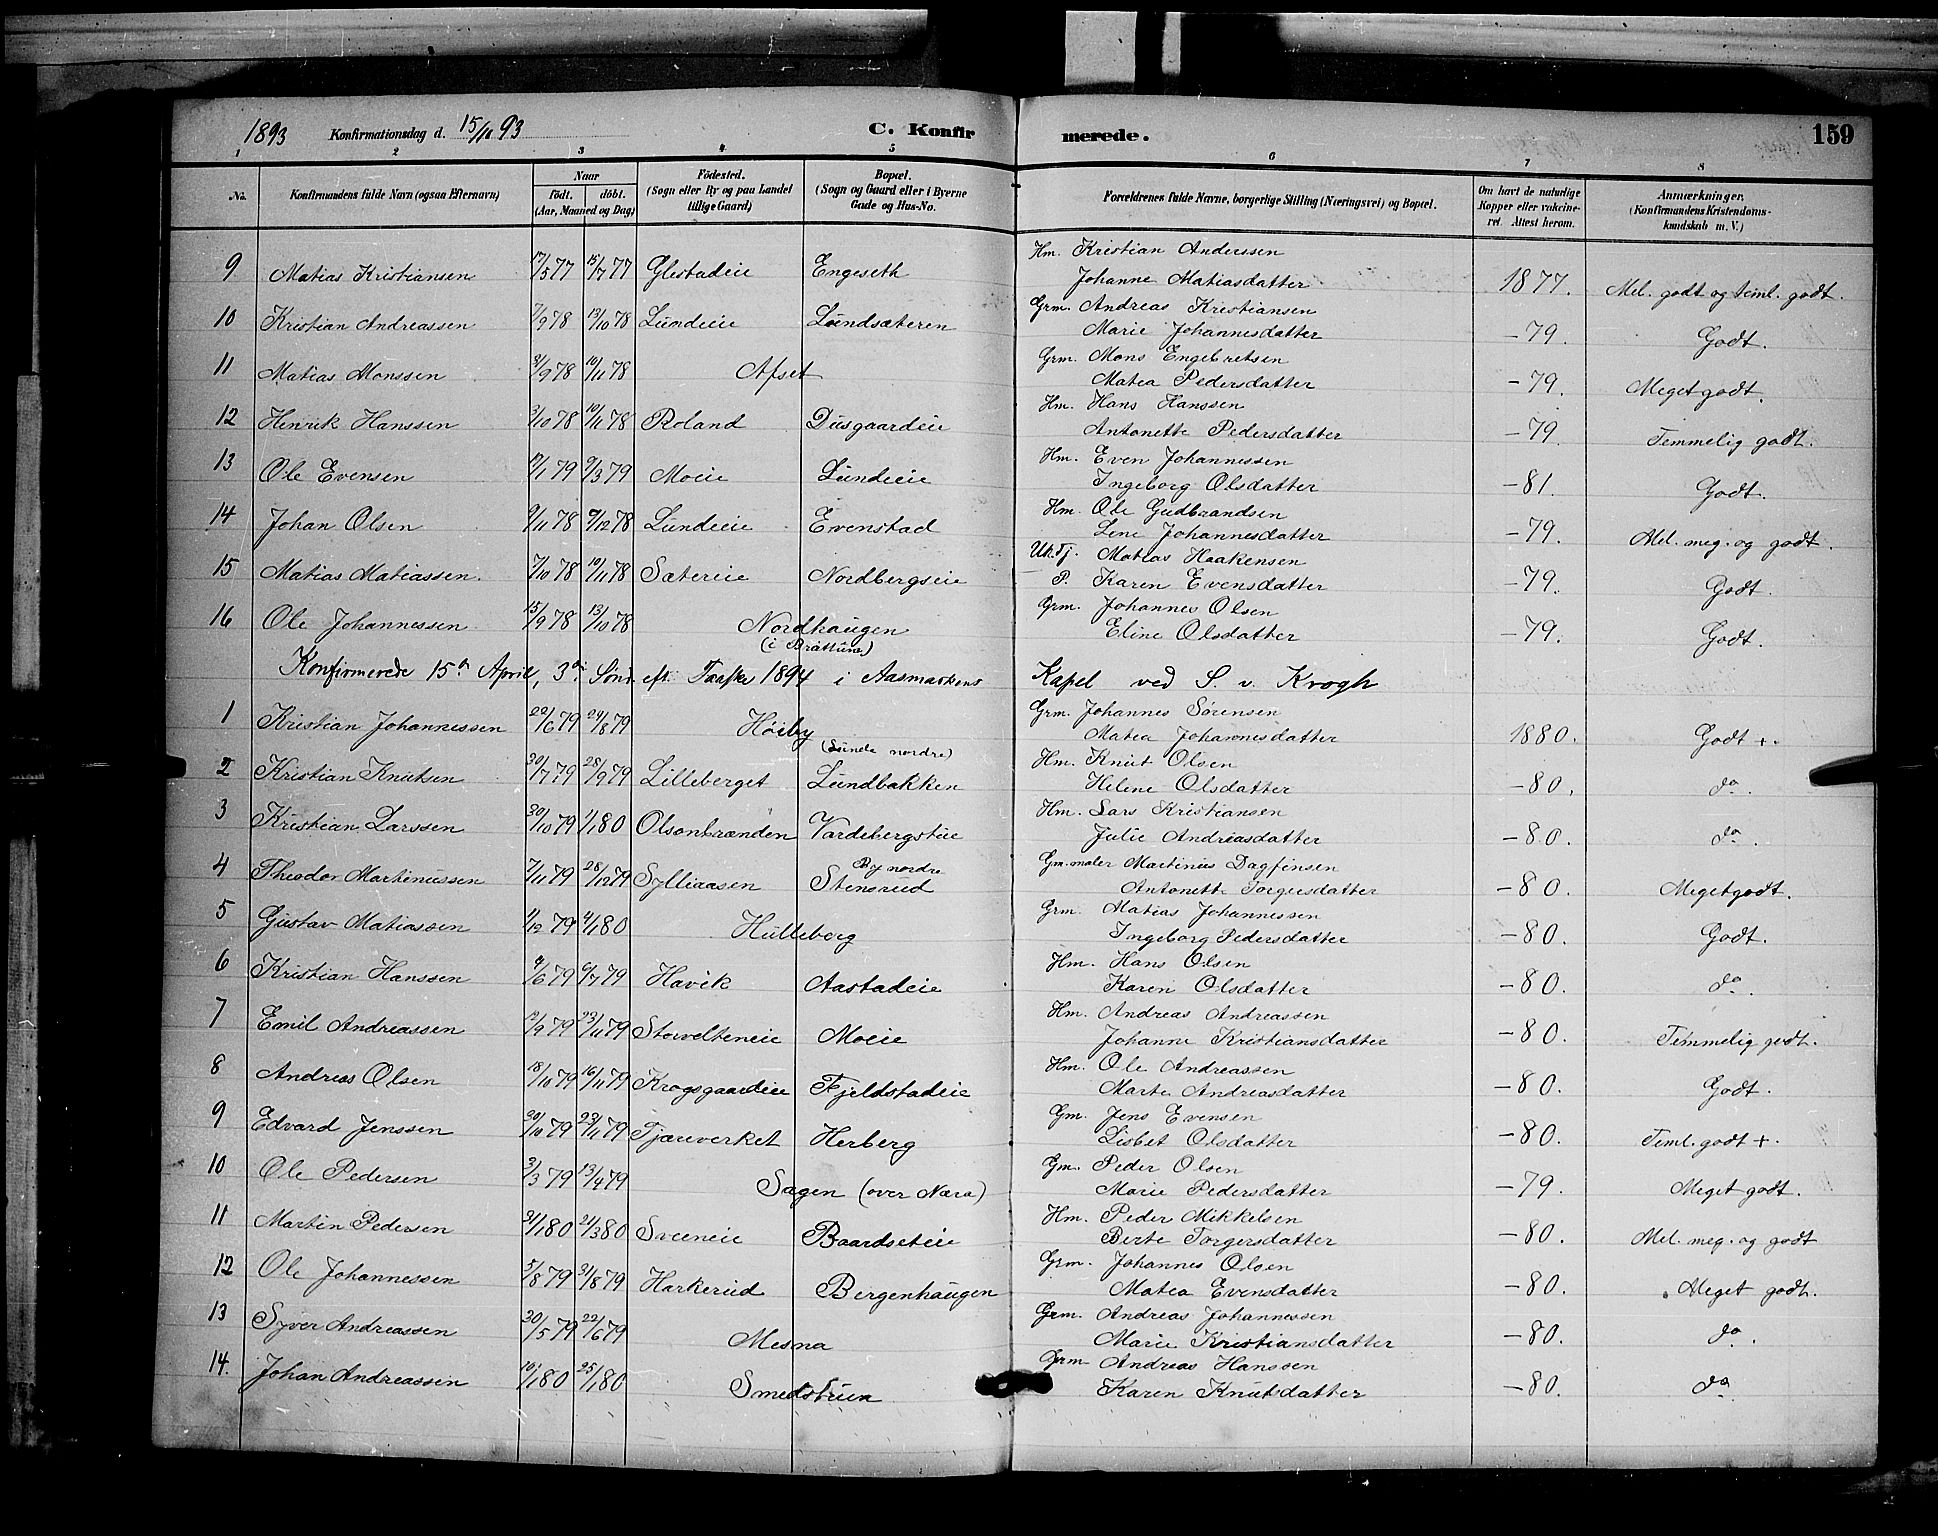 1893 Konfirmationsdag d. 15/10 93 C. Konfirmerede. 159
1 2 3 4 5 6 7 8
No. Konfirmandens fulde Navn (ogsaa Efternavn) Naar födt. döbt. (Aar, Maaned og Dag) Födested. (Sogn eller By og paa Landet tillige Gaard) Bopæl. (Sogn og Gaard eller i Byerne Gade og Hus-No. Forældrenes fulde Navne, borgerlige Stilling (Næringsvei) og Bopæl. Om havt de naturlige Kopper eller vakcineret. Attest herom. Anmærkninger. (Konfirmandens Kristendomskundskab m. V.)
9 Matias Kristiansen 17/5 77 15/7 77 Glestadeie Engeseth Hm. Kristian Anderssen
Johanne Matiasdatter 1877. Mel. godt og teml. godt.
10 Kristian Andreassen 7/9 78 13/10 78 Lundeie Lundsæteren Grm. Andreas Kristiansen
Marie Johannesdatter -79. Godt.
11 Matias Monssen 3/9 78 10/11 78 Afset Grm. Mons Engebretsen
Matea Pedersdatter -79. Meget godt.
12 Henrik Hanssen 3/10 78 10/11 78 Roland Dusgaardeie Hm. Hans Hanssen
Antonette Pedersdatter -79 Temmelig godt.
13 Ole Evensen 17/1 79 9/3 79 Moeie Lundeie Hm. Even Johannessen
Ingeborg Olsdatter -81. Godt.
14 Johan Olsen 9/11 78 9/12 78 Lundeie Evenstad Hm. Ole Gudbrandsen
Lene Johannesdatter -79. Mel. meg. og godt.
15 Matias Matiassen 7/10 78 10/11 78 Sætereie Nordbergseie Uk. Tj. Matias Haakensen
P. Karen Evensdatter -79. Godt.
16 Ole Johannessen 15/9 78 13/10 78 Nordhaugen Grm. Johannes Olsen
(i Brøttum) Eline Olsdatter -79. Godt.
Konfirmerede 15de April, 3die Sönd. eft. Paaske 1894 i Aasmarkens Kapel ved S. v. Krogh
1 Kristian Johannessen 22/6 79 24/8 79 Höiby Grm. Johannes Sörensen
Matea Johannesdatter 1880. Godt +.
2 Kristian Knutsen 30/7 79 28/9 79 Lilleberget (Lunde nordre) Lundbakken Hm. Knut Olsen
Helene Olsdatter -80. do.
3 Kristian Larssen 30/10 79 1/1 80 Olsonbrænden Vardebergseie Hm. Lars Kristiansen
Julie Andreasdatter -80. do.
4 Theodor Martinussen 7/11 79 28/12 79 Sylliaasen By nordre Stensrud Gm. maler Martinus Dagfinsen
Antonette Torgersdatter -80. Meget godt.
5 Gustav Matiassen 1/12 79 4/1 80 Hulleberg Grm. Matias Johannessen
Ingeborg Pedersdatter -80. Godt.
6 Kristian Hanssen 4/6 79 6/7 79 Havik Aastadeie Hm. Hans Olsen
Karen Olsdatter -80. do.
7 Emil Andreassen 12/9 79 23/11 79 Storvelteneie Moeie Hm. Andreas Andreassen
Johanne Kristiansdatter -80. Temmelig godt.
8 Andreas Olsen 18/10 79 16/11 79 Krogsgaardeie Fjeldstadeie Hm. Ole Andreassen
Marte Andreasdatter -80. Godt.
9 Edvard Jenssen 20/10 79 23/11 79 Tjæreverket Herberg Gm. Jens Evensen
Lisbet Olsdatter -80. Teml. godt +.
10 Ole Pedersen 3/3 79 13/4 79 Sagen (over Næra) Gm. Peder Olsen
Marie Pedersdatter -79. Meget godt.
11 Martin Pedersen 31/1 80 21/3 80 Sveeneie Baardseteie Hm. Peder Mikkelsen
Berte Torgersdatter -80. Mel. meg. og godt
12 Ole Johannessen 5/8 79 31/8 79 Harkerud Bergenhaugen Grm. Johannes Olsen
Matea Evensdatter -80. Meget godt.
13 Syver Andreassen 30/5 79 22/6 79 Mesna Grm. Andreas Johannessen
Marie Kristiansdatter -80. do.
14. Johan Andreassen 10/1 80 25/1 80 Smedstuen Grm Andreas Hanssen
Karen Knutsdatter -80. do